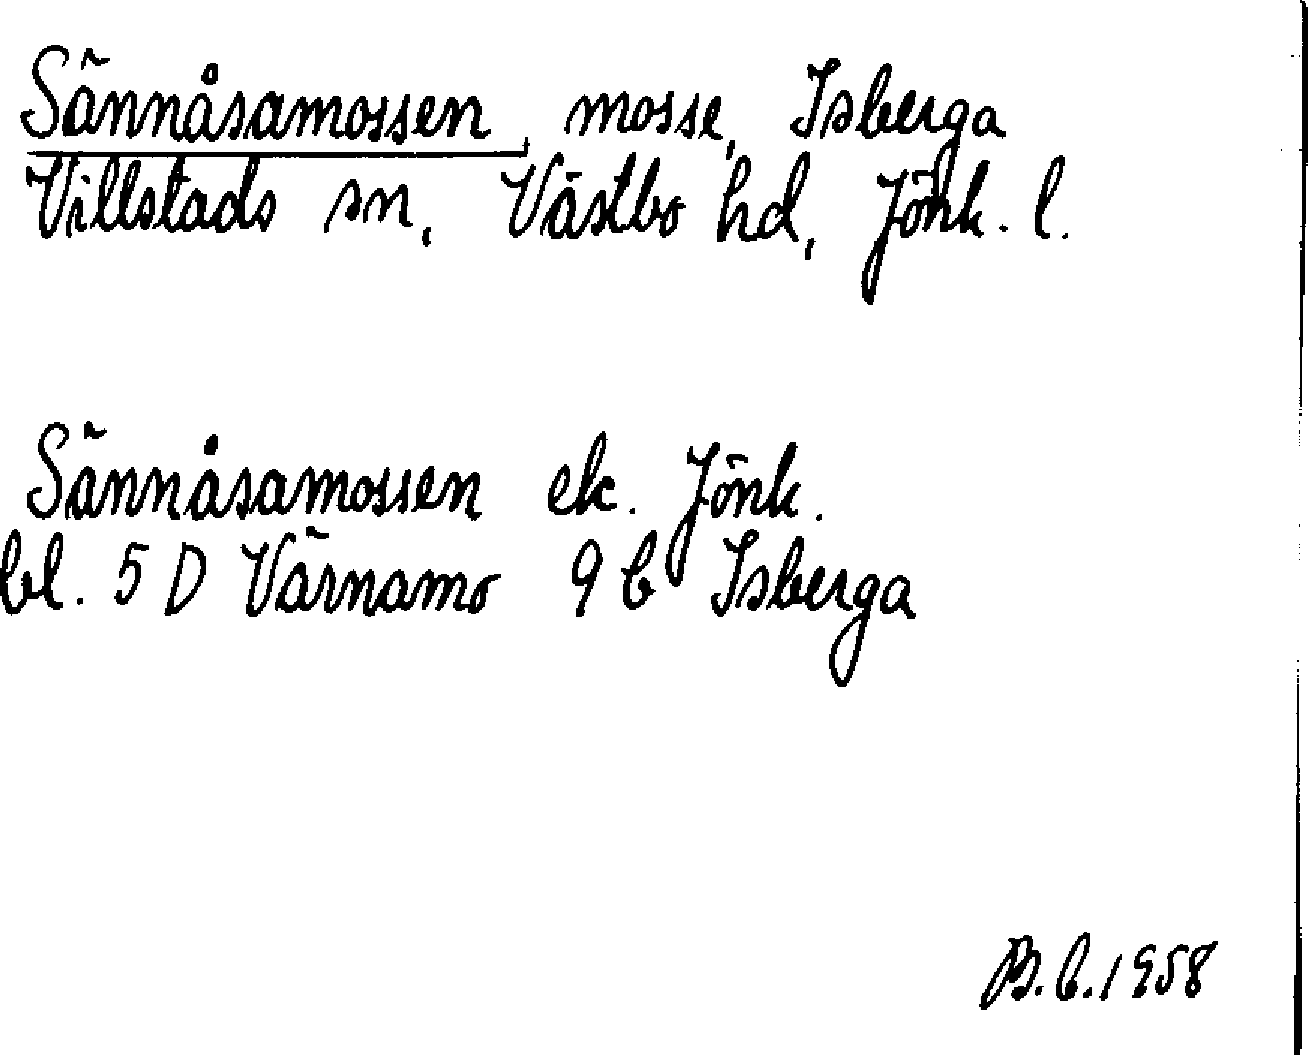 Sännåsamossen, mosse, Isberga
Villstads sn, Västbo hd, Jönk. l.
Sännåsamossen ek. Jönk.
bl. 5 D Värnamo 9 b Isberga
B.b. 1958